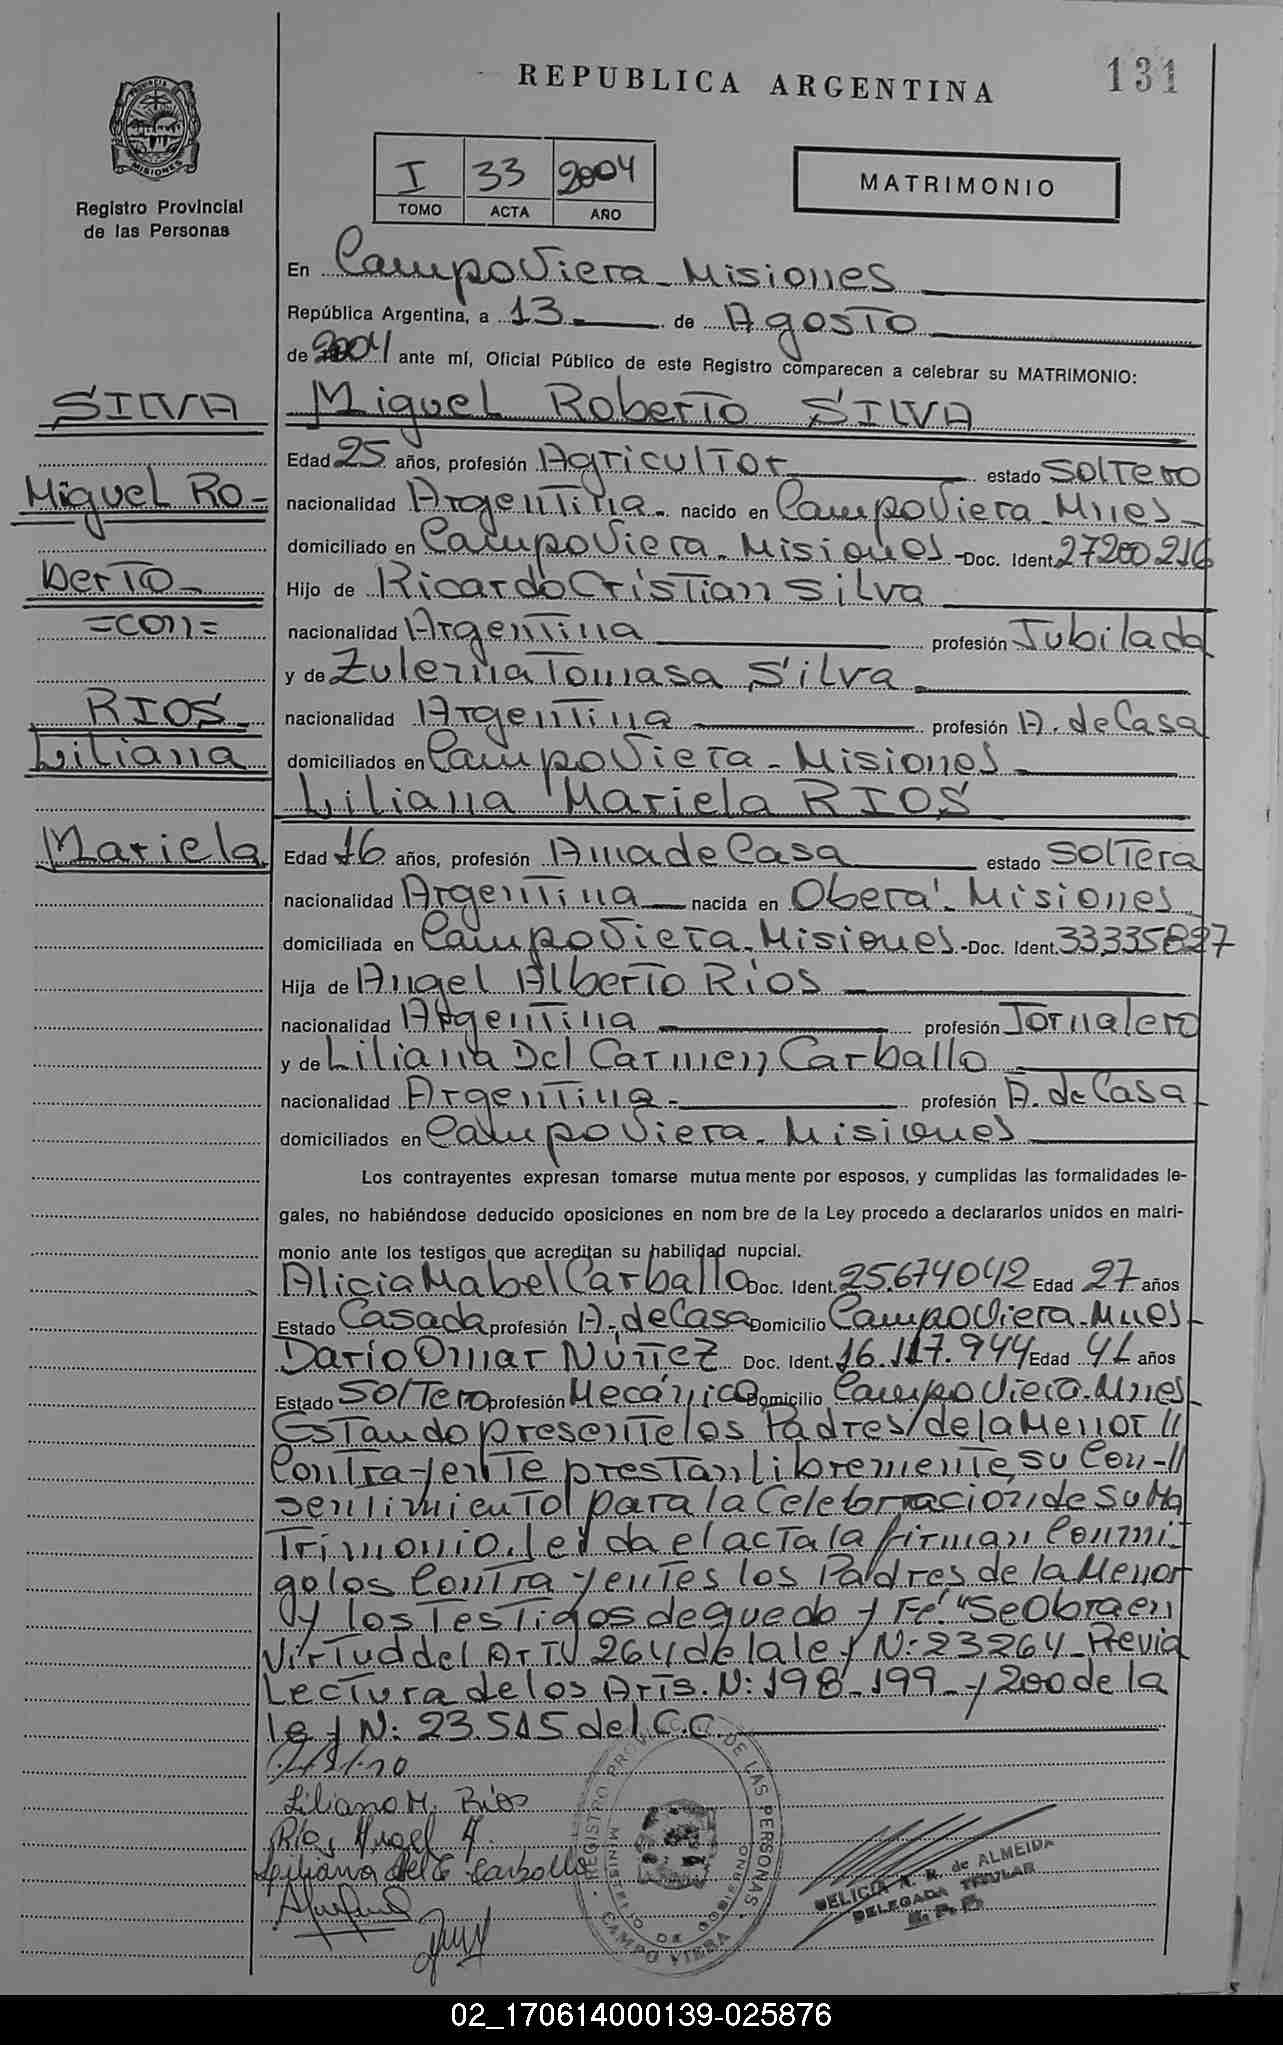 REPUBLICA ARGENTINA
131
PROVINCIA DE
MISIONES
Registro Provincial
de las Personas
I 33 2004
TOMO ACTA AÑO
MATRIMONIO
En Campo Viera - Misiones
República Argentina, a 13 de Agosto
de 2004 ante mí, Oficial Público de este Registro comparecen a celebrar su MATRIMONIO:
SILVA
Miguel Ro-
berto -
=con=
RIOS
Liliana
Mariela
Miguel Roberto SILVA
Edad 25 años, profesión Agricultor estado Soltero
nacionalidad Argentina - nacido en Campo Viera - Mnes -
domiciliado en Campo Viera - Misiones - Doc. Ident. 27200216
Hijo de Ricardo Cristian Silva
nacionalidad Argentina profesión Jubilada
y de Zulema Tomasa Silva
nacionalidad Argentina profesión A. de Casa
domiciliados en Campo Viera - Misiones
Liliana Mariela RIOS
Edad 16 años, profesión Ama de Casa estado Soltera
nacionalidad Argentina nacida en Oberá - Misiones
domiciliada en Campo Viera - Misiones - Doc. Ident. 33335827
Hija de Angel Alberto Rios
nacionalidad Argentina profesión Jornalero
y de Liliana Del Carmen Carballo
nacionalidad Argentina - profesión A. de Casa
domiciliados en Campo Viera - Misiones
Los contrayentes expresan tomarse mutua mente por esposos, y cumplidas las formalidades le-
gales, no habiéndose deducido oposiciones en nom bre de la Ley procedo a declararlos unidos en matri-
monio ante los testigos que acreditan su habilidad nupcial.
Alicia Mabel Carballo Doc. Ident. 25.674042 Edad 27 años
Estado Casada profesión A. de Casa Domicilio Campo Viera - Mnes -
Darío Omar Núñez Doc. Ident. 16.117.944 Edad 41 años
Estado Soltero profesión Mecánico Domicilio Campo Viera - Mnes -
Estando presente los Padres/ de la Menor //
Contrayente prestan libremente su Con-//
sentimiento/ para la Celebración/ de su Ma
trimonio. leida el acta la firman Conmi-
go los Contrayentes los Padres de la Menor
y los Testigos de que doy Fe. "Se Obra en
Virtud del Art. 264 de la ley N: 23264 - Previa
Lectura de los Arts. N: 198 - 199 - y 200 de la
ley N: 23.515 del C.C.
Liliana M. Rios
Ríos Angel A.
Liliana del C Carballo
REGISTRO PROVINCIAL DE LAS PERSONAS
MINISTERIO DE GOBIERNO
CAMPO VIERA
DELICIA N. R. de ALMEIDA
DELEGADA TITULAR
R.P.P.
02_170614000139-025876